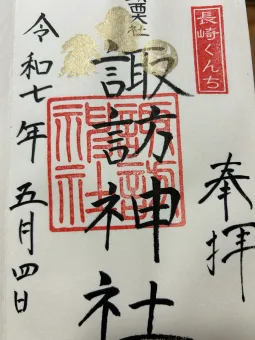 長崎くんち
奉拝
諏訪神社
諏訪神社
令和七年 五月四日